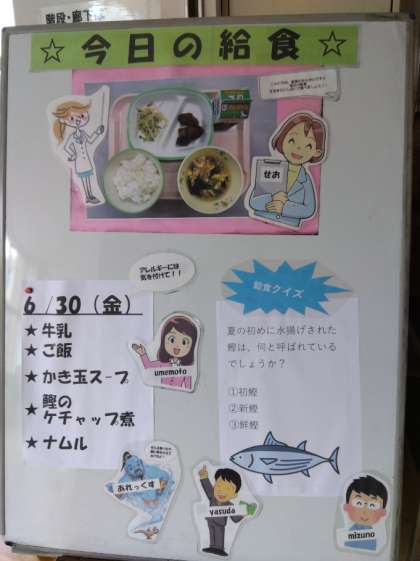 階段・廊下
☆今日の給食☆
せお
アレルギーには
気を付けて！！
6/30（金）
★牛乳
★ご飯
★かき玉スープ
★鰹の
ケチャップ煮
★ナムル
umemoto
給食クイズ
夏の初めに水揚げされた
鰹は、何と呼ばれている
でしょうか？
①初鰹
②新鰹
③鮮鰹
あれっくす
yasuda
mizuno